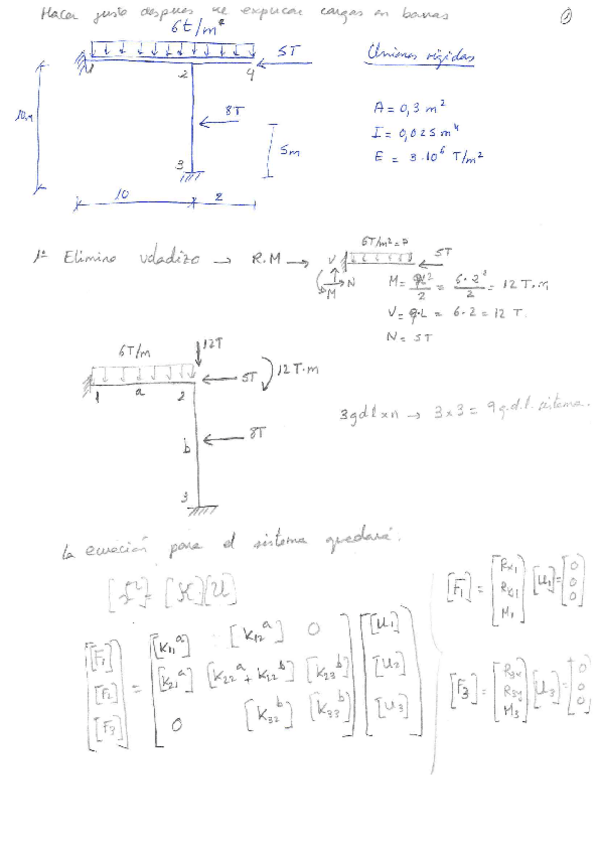 Hacer justo despues de explicar cargas en barras
1
6t/m²
Uniones rígidas
1
2
4
5T
10m
8T
3
5m
10
2
A = 0,3 m²
I = 0,025 m⁴
E = 3·10⁶ T/m²
1º Elimino voladizo → R.M →
6T/m²=q
5T
V
N
M
M = qL²/2 = 6·2²/2 = 12 T·m
V = q·L = 6·2 = 12 T.
N = 5T
6T/m
12T
5T
12T·m
1
a
2
b
8T
3
3gdl×n → 3×3 = 9 g.d.l. sistema.
La ecuación para el sistema quedará.
[F] = [K][U]
[[F₁] [F₂] [F₃]] = [[K₁₁ᵃ] [K₁₂ᵃ] 0
[K₂₁ᵃ] [K₂₂ᵃ + K₂₂ᵇ] [K₂₃ᵇ]
0 [K₃₂ᵇ] [K₃₃ᵇ]] [[U₁] [U₂] [U₃]]
[F₁] = [Rx₁ Ry₁ M₁] [U₁] = [0 0 0]
[F₃] = [R₃x R₃y M₃] [U₃] = [0 0 0]